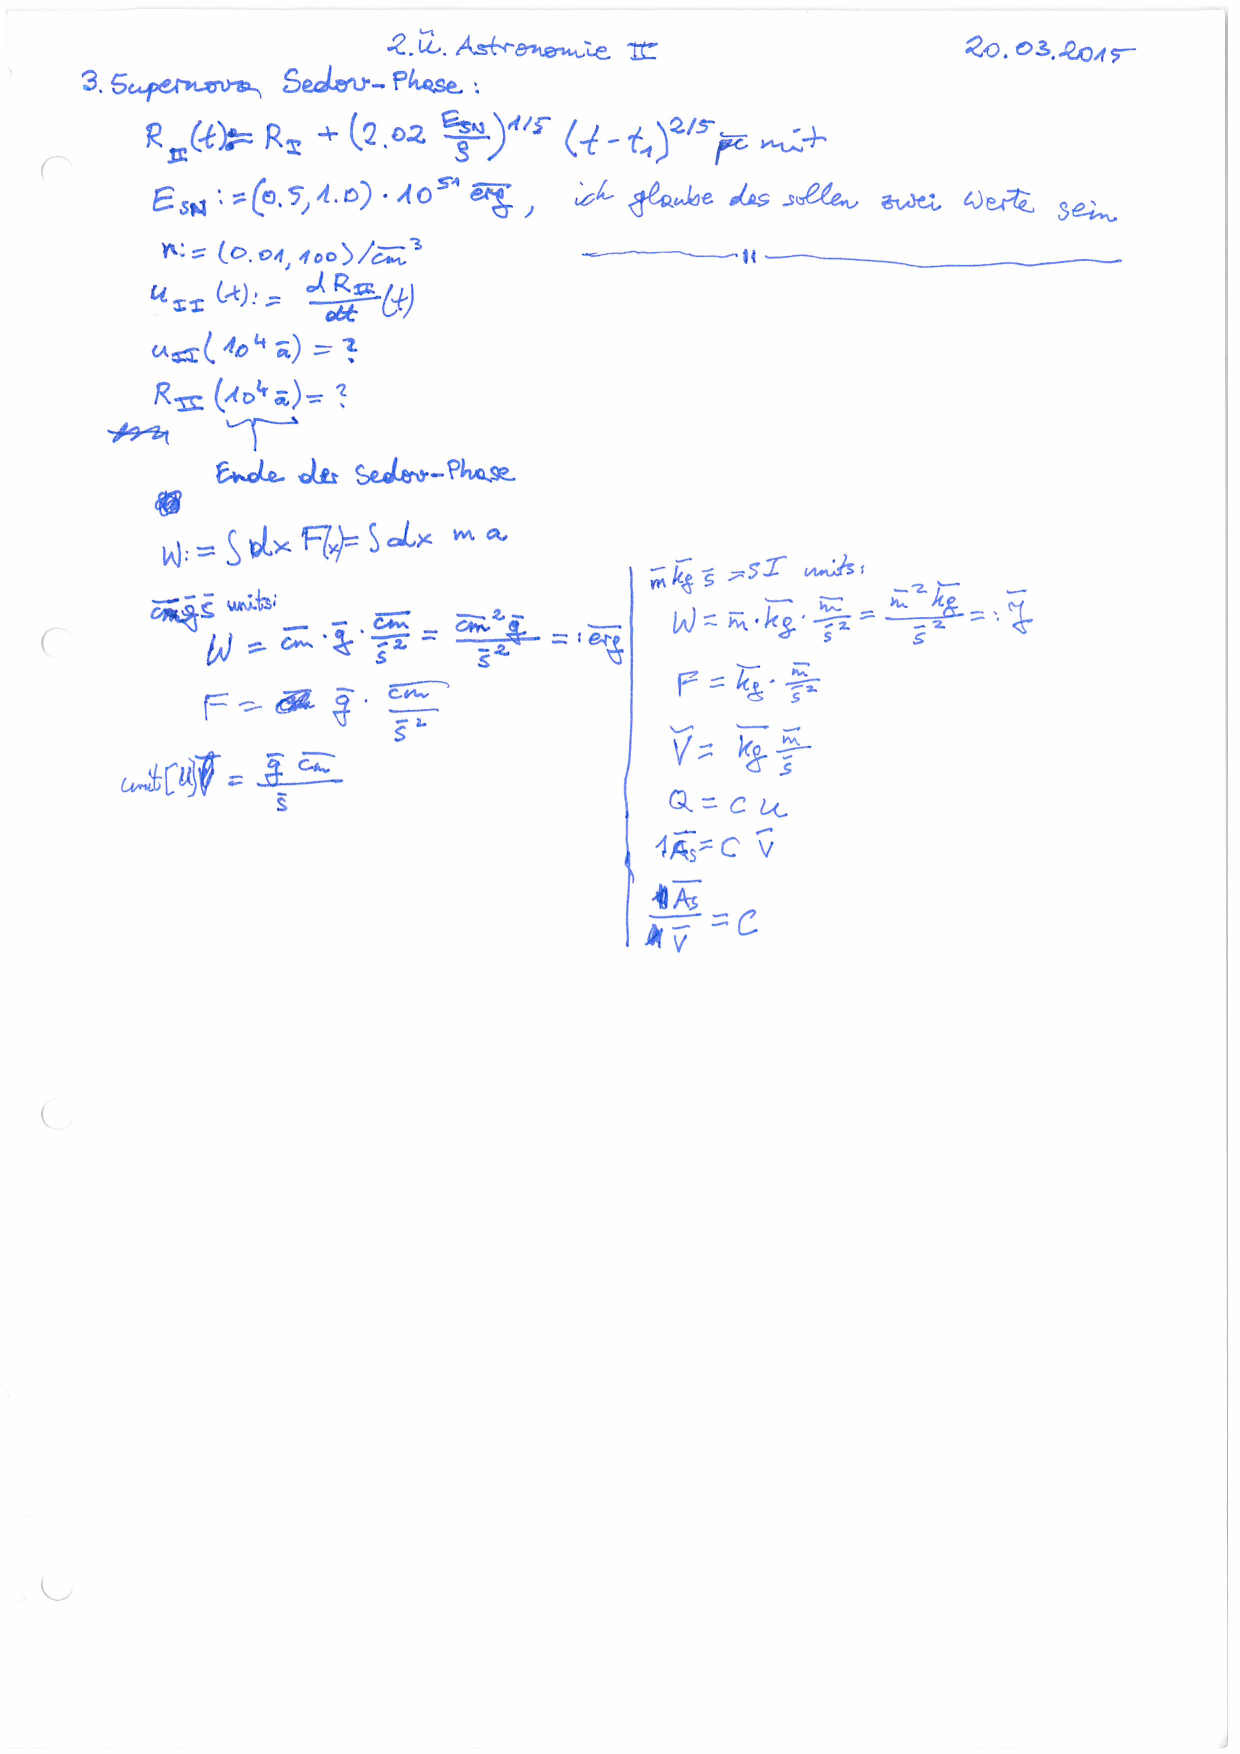 2.Ü. Astronomie II 20.03.2015
3. Supernova, Sedov-Phase:
R_II(t):= R_I + (2.02 E_SN/ρ)^1/5 (t-t_1)^2/5 p̅c̅ mit
E_SN := (0.5, 1.0) · 10^51 e̅r̅g̅, ich glaube das sollen zwei Werte sein
n := (0.01, 100)/c̅m̅^3 —— " ——
u_II(t) := dR_II/dt (t)
u_II(10^4 a̅) = ?
R_II(10^4 a̅) = ?
Ende der Sedov-Phase
W := ∫dx F(x) = ∫dx m a
c̅m̅ g̅ s̅ units:
W = c̅m̅ · g̅ · c̅m̅/s̅^2 = c̅m̅^2 g̅/s̅^2 =: e̅r̅g̅
F = g̅ · c̅m̅/s̅^2
unit[u] = g̅ c̅m̅/s̅
m̅ k̅g̅ s̅ = SI units:
W = m̅ · k̅g̅ · m̅/s̅^2 = m̅^2 k̅g̅/s̅^2 =: J̅
F = k̅g̅ · m̅/s̅^2
V̅ = k̅g̅ m̅/s̅
Q = C u
1 A̅s̅ = C V̅
A̅s̅/V̅ = C